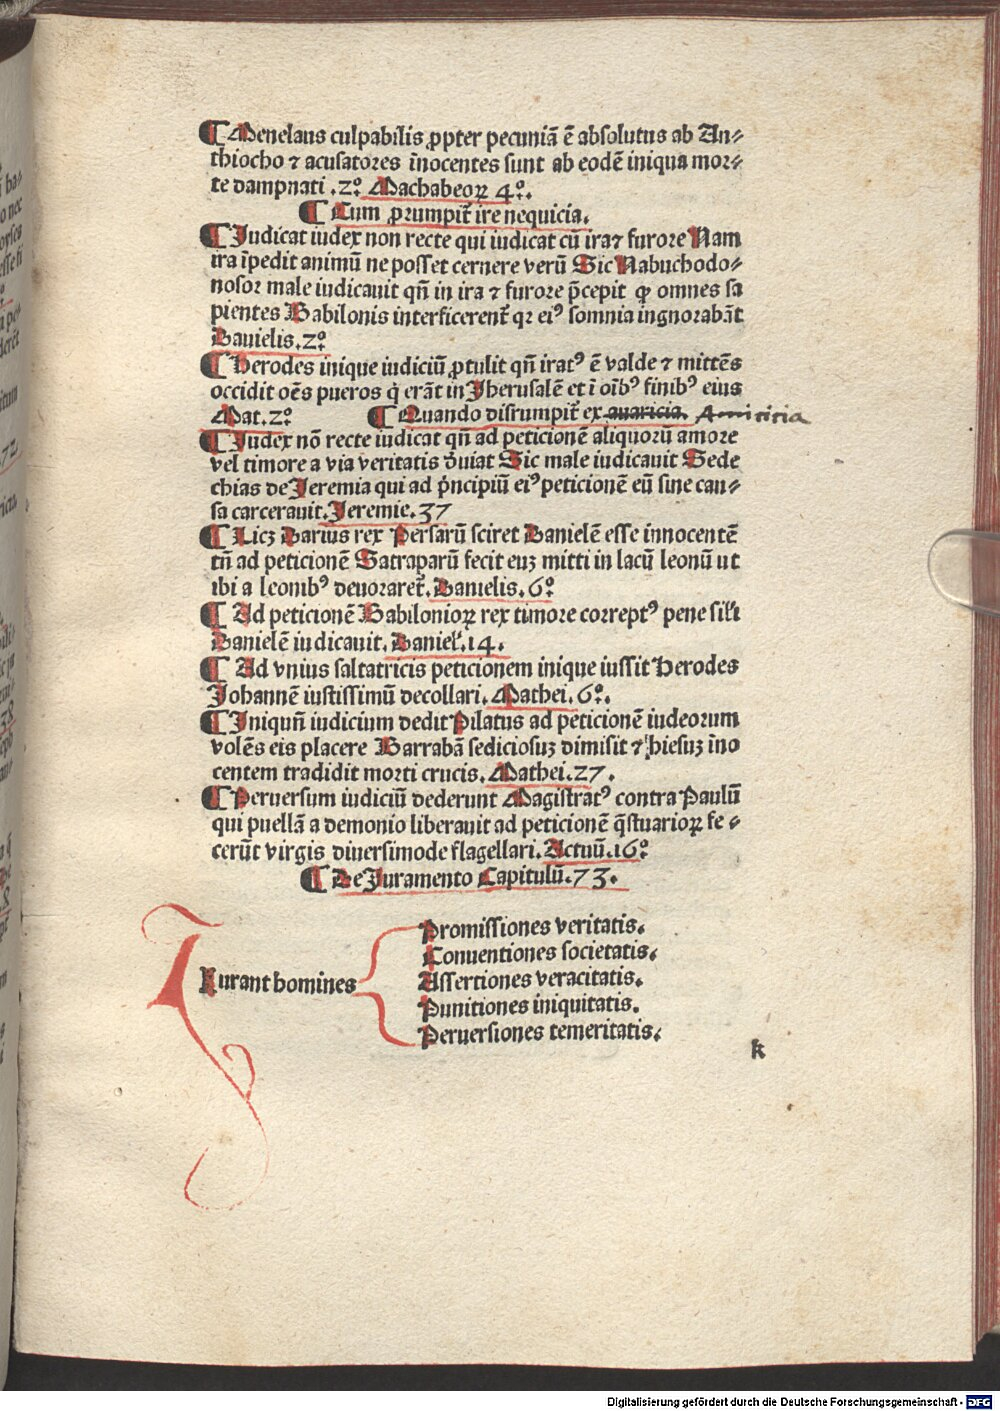 ¶ Menelaus culpabilis ꝓpter pecuniã ē absolutus ab An⸗
thiocho ⁊ acusatores īnocentes sunt ab eodē iniqua mor⸗
te dampnati .2º Machabeoꝝ 4º.
¶ Cum ꝓrumpit̄ ire nequicia.
¶ Iudicat iudex non recte qui iudicat cū ira ⁊ furore Nam
ira īpedit animū ne posset cernere verū Sic Nabuchodo⸗
nosor male iudicauit qn̄ in ira ⁊ furore p̄cepit ꝙ omnes sa
pientes Babilonis interficerent̄ qꝛ eiꝰ somnia ingnorabāt
Danielis.2º
¶ Herodes inique iudiciū ꝓtulit qn̄ iratꝰ ē valde ⁊ mittēs
occidit oēs pueros q̇ erāt in Jherusalē et ī oībꝰ finibꝰ eius
Mat.2º ¶ Quando disrumpit̄ ex auaricia. Amicicia
¶ Iudex nō recte iudicat qn̄ ad peticionē aliquorū amore
vel timore a via veritatis d̄uiat Sic male iudicauit Sede
chias de Jeremia qui ad p̍ncipiū eiꝰ peticionē eū sine cau⸗
sa carcerauit. Jeremie.37
¶ Licꝫ Darius rex Persarū sciret Danielē esse innocentē
tn̄ ad peticionē Satraparū fecit euꝫ mitti in lacū leonū ut
ibi a leonibꝰ deuoraret̄. Danielis.6º
¶ Ad peticionē Babilonioꝝ rex timore correptꝰ pene sil̄i
Danielē iudicauit. Daniel̄.14.
¶ Ad vnius saltatricis peticionem inique iussit Herodes
Johannē iustissimū decollari. Mathei.6º.
¶ Iniquū iudicium dedit Pilatus ad peticionē iudeorum
volēs eis placere Barrabā sediciosuꝫ dimisit ⁊ hiesuꝫ īno
centem tradidit morti crucis. Mathei.27.
¶ Peruersum iudiciū dederunt Magistratꝰ contra Paulū
qui puellā a demonio liberauit ad peticionē q̄stuarioꝝ fe⸗
cerūt virgis diuersimode flagellari. Actuū.16º
¶ De Juramento Capitulū.73.
Iurant homines
Promissiones veritatis.
Conuentiones societatis.
Assertiones veracitatis.
Punitiones iniquitatis.
Peruersiones temeritatis.
k
Digitalisierung gefördert durch die Deutsche Forschungsgemeinschaft - DFG